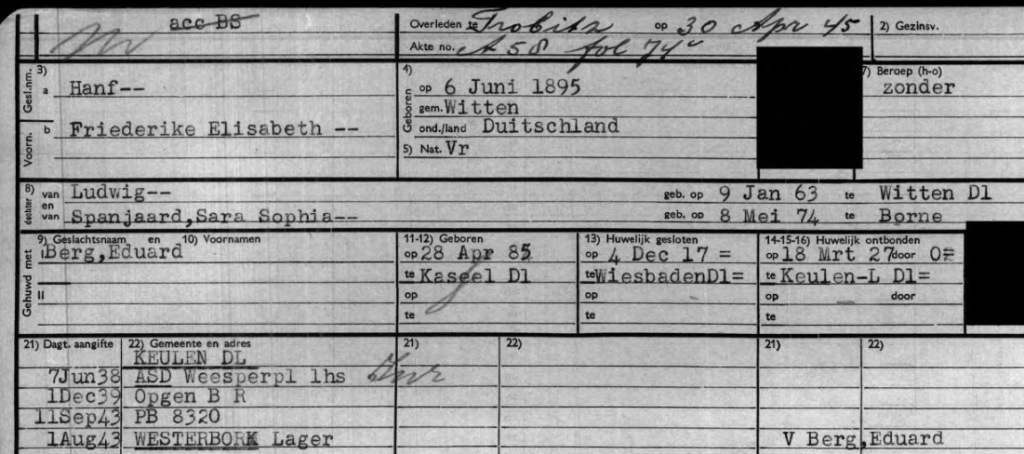 acc BS
Overleden te Trobitz op 30 Apr 45 2) Gezinsv.
Akte no. A 58 fol 74v
Gesl.nm. 3) a Hanf--
Voorn. b Friederike Elisabeth --
4) Geboren op 6 Juni 1895
gem. Witten
ond./land Duitschland
5) Nat. Vr
7) Beroep (h-o)
zonder
8) dochter van Ludwig-- geb. op 9 Jan 63 te Witten Dl
en van Spanjaard,Sara Sophia-- geb. op 8 Mei 74 te Borne
Gehuwd met 9) Geslachtsnaam en 10) Voornamen 11-12) Geboren 13) Huwelijk gesloten 14-15-16) Huwelijk ontbonden
I Berg,Eduard op 28 Apr 85 op 4 Dec 17 = op 18 Mrt 27 door O=
te Kassel Dl te WiesbadenDl= te Keulen-L Dl=
II op op op door
te te te
21) Dagt. aangifte 22) Gemeente en adres 21) 22) 21) 22)
KEULEN DL
7Jun38 ASD Weesperpl lhs
1Dec39 Opgen B R
11Sep43 PB 8320
1Aug43 WESTERBORK Lager V Berg,Eduard